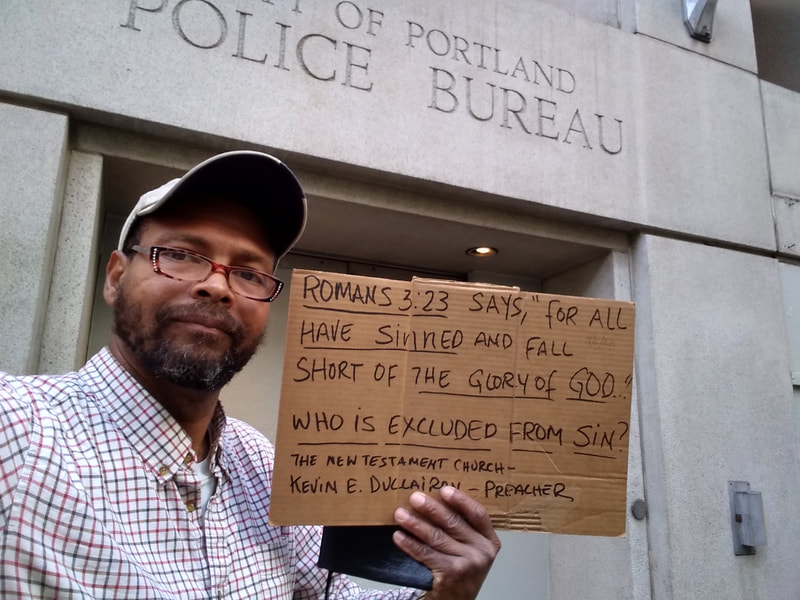 CITY OF PORTLAND
POLICE BUREAU
ROMANS 3:23 SAYS, "FOR ALL
HAVE SINNED AND FALL
SHORT OF THE GLORY OF GOD..."
WHO IS EXCLUDED FROM SIN?
THE NEW TESTAMENT CHURCH-
KEVIN E. - PREACHER